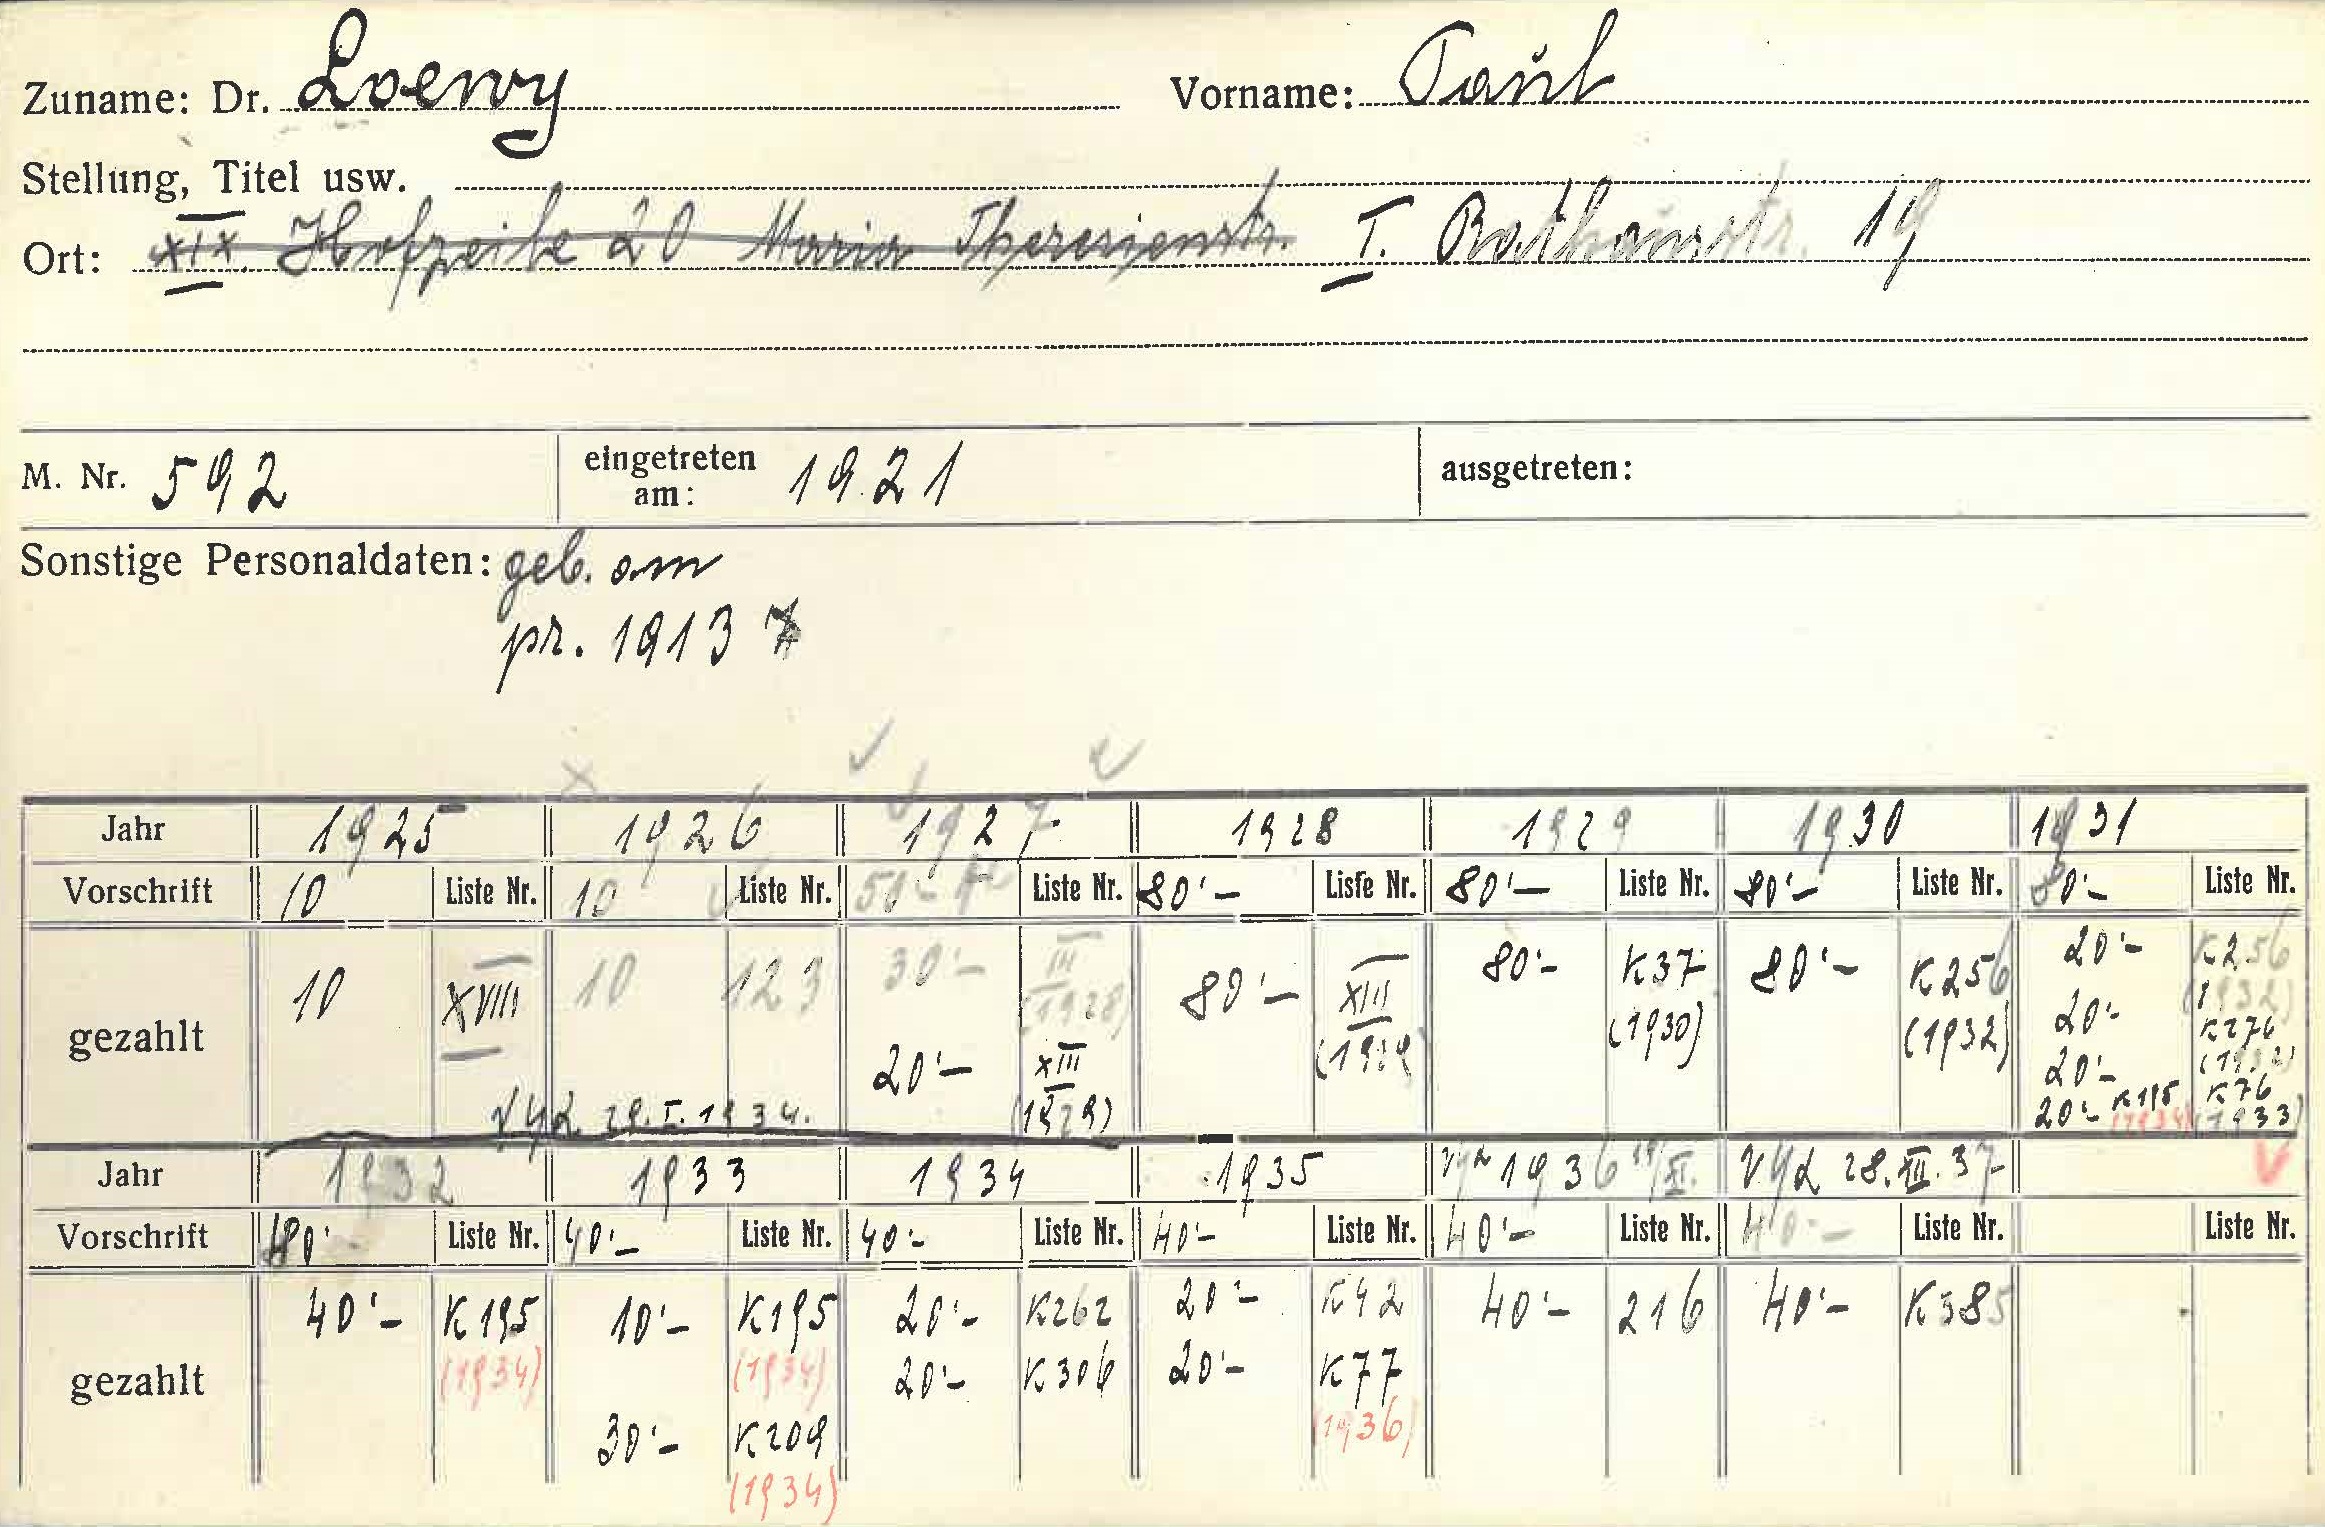 Zuname: Dr. Loewy Vorname: Paul
Stellung, Titel usw.
Ort: XIX. Hofzeile 20 Maria Theresienstr. I. Rathausstr. 19
M. Nr. 592 eingetreten am: 1921 ausgetreten:
Sonstige Personaldaten: geb. am
pr. 1913
Jahr 1925 1926 1927 1928 1929 1930 1931
Vorschrift 10 Liste Nr. 10 Liste Nr. 50'- Liste Nr. 80'- Liste Nr. 80'- Liste Nr. 80'- Liste Nr. 80'- Liste Nr.
gezahlt 10 XVIII 10 123 30'- III (1928) 80'- XIII (1929 80'- K37 (1930) 80'- K256 (1932) 20'- K256 (1932)
20'- K276 (1932)
20'- XIII (1929) 20'- K76 (1933)
20'- K195 (1934)
29.I.1934.
Jahr 1932 1933 1934 1935 1936 28.XII.37
Vorschrift 40'- Liste Nr. 40'- Liste Nr. 40'- Liste Nr. 40'- Liste Nr. 40'- Liste Nr. 40'- Liste Nr. Liste Nr.
gezahlt 40'- K195 (1934) 10'- K195 (1934) 20'- K262 20'- K42 40'- 216 40'- K385
20'- K306 20'- K77 (1936)
30'- K209 (1934)